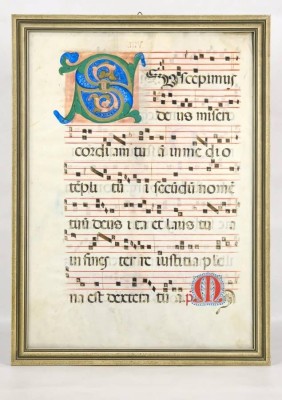 SUscepimus
de us miseri
cordi am tu ā in me di o
tēpli tu i secūdū nomē
tuū deus i ta et laus tu a
in fines ter re iusticia ple
na est dextera tu a. p M